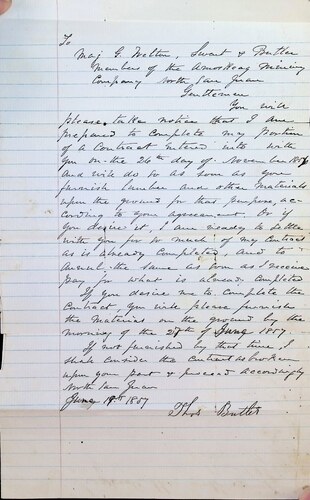 To
Maj G. Welton, Swart & Butler
Members of the Amoskeag Mining
Company North San Juan
Gentlemen
You will
please take notice that I am
prepared to complete my portion
of a Contract entered into with
you on the 26th day of November 1856
and will do so as soon as you
furnish lumber and other materials
upon the ground for that purpose, ac-
cording to your agreement. Or if
you desire it, I am ready to settle
with you for so much of my contract
as is already completed, and to
annul the same as soon as I receive
pay for what is already completed
If you desire me to complete the
Contract, you will please furnish
the materials on the ground by the
morning of the 27th of June 1857.
If not furnished by that time, I
shall consider the contract as broken
upon your part & proceed accordingly
North San Juan
June 19th 1857
Thos Butler